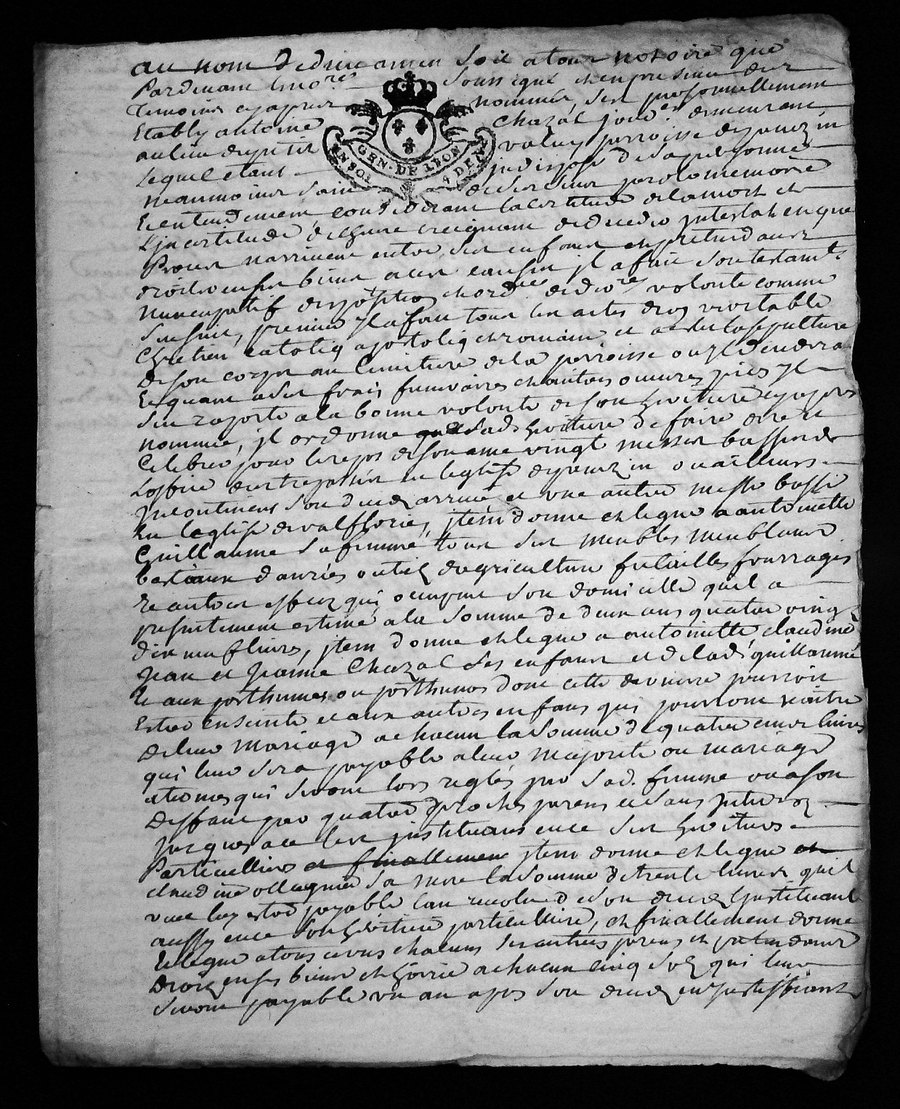 au nom de dieu amen soit atous notoire que
Pardevant le no.re soussigné et en presence des
Temoins cy apres nommés, s'est personnellement
Etably antoine Chazal demeurant
au lieu du petit valus parroisse de jonzin
GEN. DE LYON
Lequel etant indisposé de sa personne
neanmoins sain de ses sens parole memoire
Et entendement considerant la certitude de la mort et
L'jncertitude de l'heure creignant de decedé intestat et que
Proces narrivent entre ses enfans et pretendants
droits en ses biens a eux causes jl a fait son testam.t
Nuncupatif disposition et ord.re de der.re volonté comme
s'ensuit, premier jl a fait tous les actes d'un veritable
Chretien catoliq apostoliq et romain, et a eslu la sepulture
De son corps au cimitiere de la parroisse ou jl decedera
Et quant a ses frais funeraires et autres œuvres pies jl
s'en raporte a la bonne volonté de son heritiere cy apres
nommée, jl ordonne a sad. heritiere de faire dire et
Celebrer pour le repos de son ame vingt messes basses de
L'office des trepassés en leglise de jonzin ou ailleurs
jncontinent son deces arrivé et une autre messe basse
En leglise de valfloric, jtem donne et legue a antoinette
Guillaume sa femme tous ses meubles meublans
bestiaux danrées outils d'agriculture futailles fourrages
Et autres effets qui occupent son domicille quil a
presentement estimé a la somme de deux cens quatre vingt
dix neuf livres, jtem donne et legue a antoinette, claudine
Jean et Jeanne Chazal ses enfans et de lad. guillaume
Et aux posthumes ou posthumes dont cette derniere pourroit
Estre enceinte et aux autres enfans qui pourront naitre
De leur mariage a chacun la somme de quatre livres
qui leur sera payable a leur majorité ou mariage
a termes qui seront lors reglés par sad. femme ou a son
Deffaut par quatre proches parens et sans jnterest
jusques a ce les jnstituant en ce ses heritiers
Particulliers et finallement jtem donne et legue a
claudine ollagnier sa mere la somme de trente livres qu'il
veut luy estre payable l'an revolu de son deces l'jnstituant
aussy en ce son heritiere particulliere, et finallement donne
Et legue a tous et uns chacuns ses autres parens et pretendans
Droit en ses biens et hoirie a chacun cinq sols qui leur
seront payable un an apres son deces en justiffiant